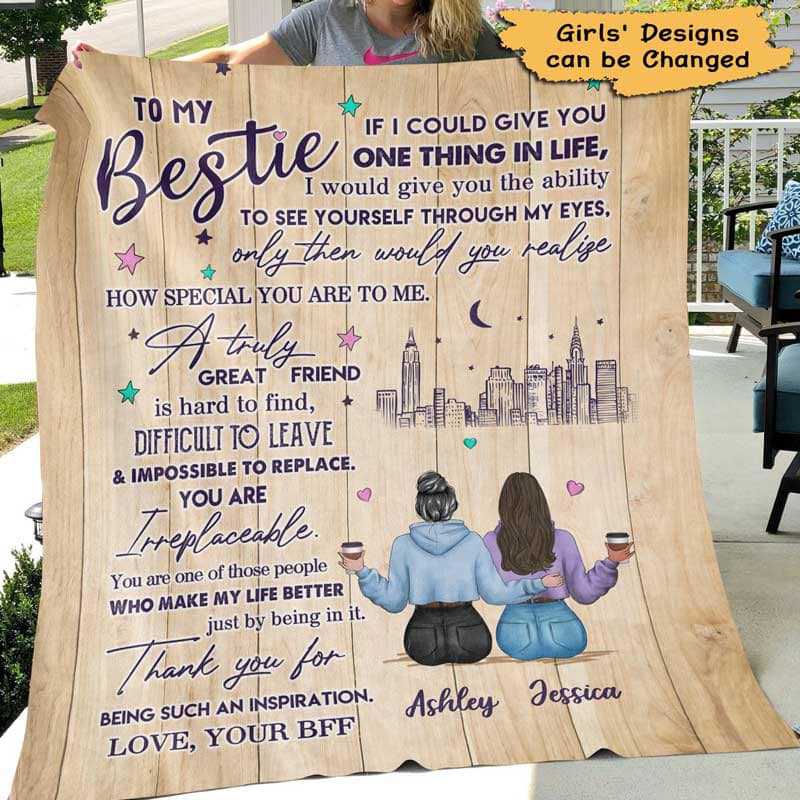 Girls' Designs
can be Changed
TO MY
Bestie
IF I COULD GIVE YOU
ONE THING IN LIFE,
I would give you the ability
TO SEE YOURSELF THROUGH MY EYES,
only then would you realize
HOW SPECIAL YOU ARE TO ME.
A truly
GREAT FRIEND
is hard to find,
DIFFICULT TO LEAVE
& IMPOSSIBLE TO REPLACE.
YOU ARE
Irreplaceable.
You are one of those people
WHO MAKE MY LIFE BETTER
just by being in it.
Thank you for
BEING SUCH AN INSPIRATION.
LOVE, YOUR BFF
Ashley Jessica